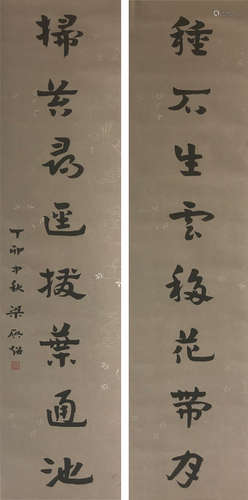 種石生雲移花帶月
掃苔尋徑撥葉通池
丁卯中秋 梁啟超